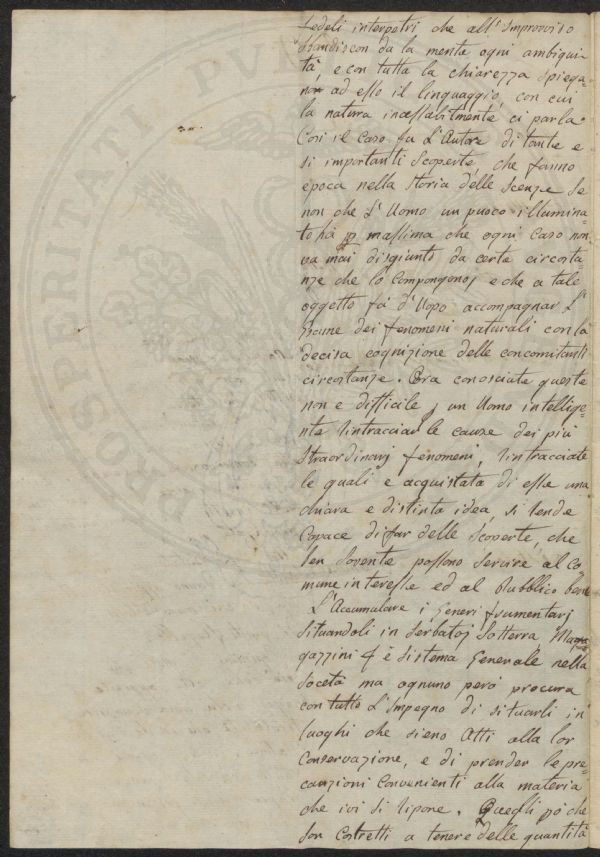 fedeli interpetri che all'Improvviso
sbandiscon da la mente ogni ambigui-
tà, e con tutta la chiarezza spiega-
no ad esso il linguaggio, con cui
la natura ineffabilmente ci parla.
Così il caso fu l'Autore di tante e
si importanti scoperte, che fanno
epoca nella storia delle scenze. Se
non che l'Uomo un puoco illumina-
to hà p massima che ogni caso non
va mai disgiunto da certe circosta-
nze che lo compongono, e che a tale
oggetto fà d'Uopo accompagnar l'
zame dei fenomeni naturali con la
decisa cognizione delle concomitanti
circostanze. Ora conosciate queste
non e difficile p un Uomo intellige-
nte rintracciar le cause dei più
straordinarj fenomeni, rintracciate
le quali e acquistata di esse una
chiara e distinta idea, si rende
capace di far delle scoperte, che
ben sovente possono servire al co
mune interesse ed al Pubblico bene
L'Accumulare i Generi frumentarj
situandoli in serbatoj sotterra Ma
gazzini è sistema Generale nella
Società ma ognuno però procura
con tutto l'Impegno di situarli in
luoghi che sieno Atti alla lor
conservazione, e di prender le pre
cauzioni convenienti alla materia
che ivi si ripone. Quegli pò che
son costretti a tenere delle quantità